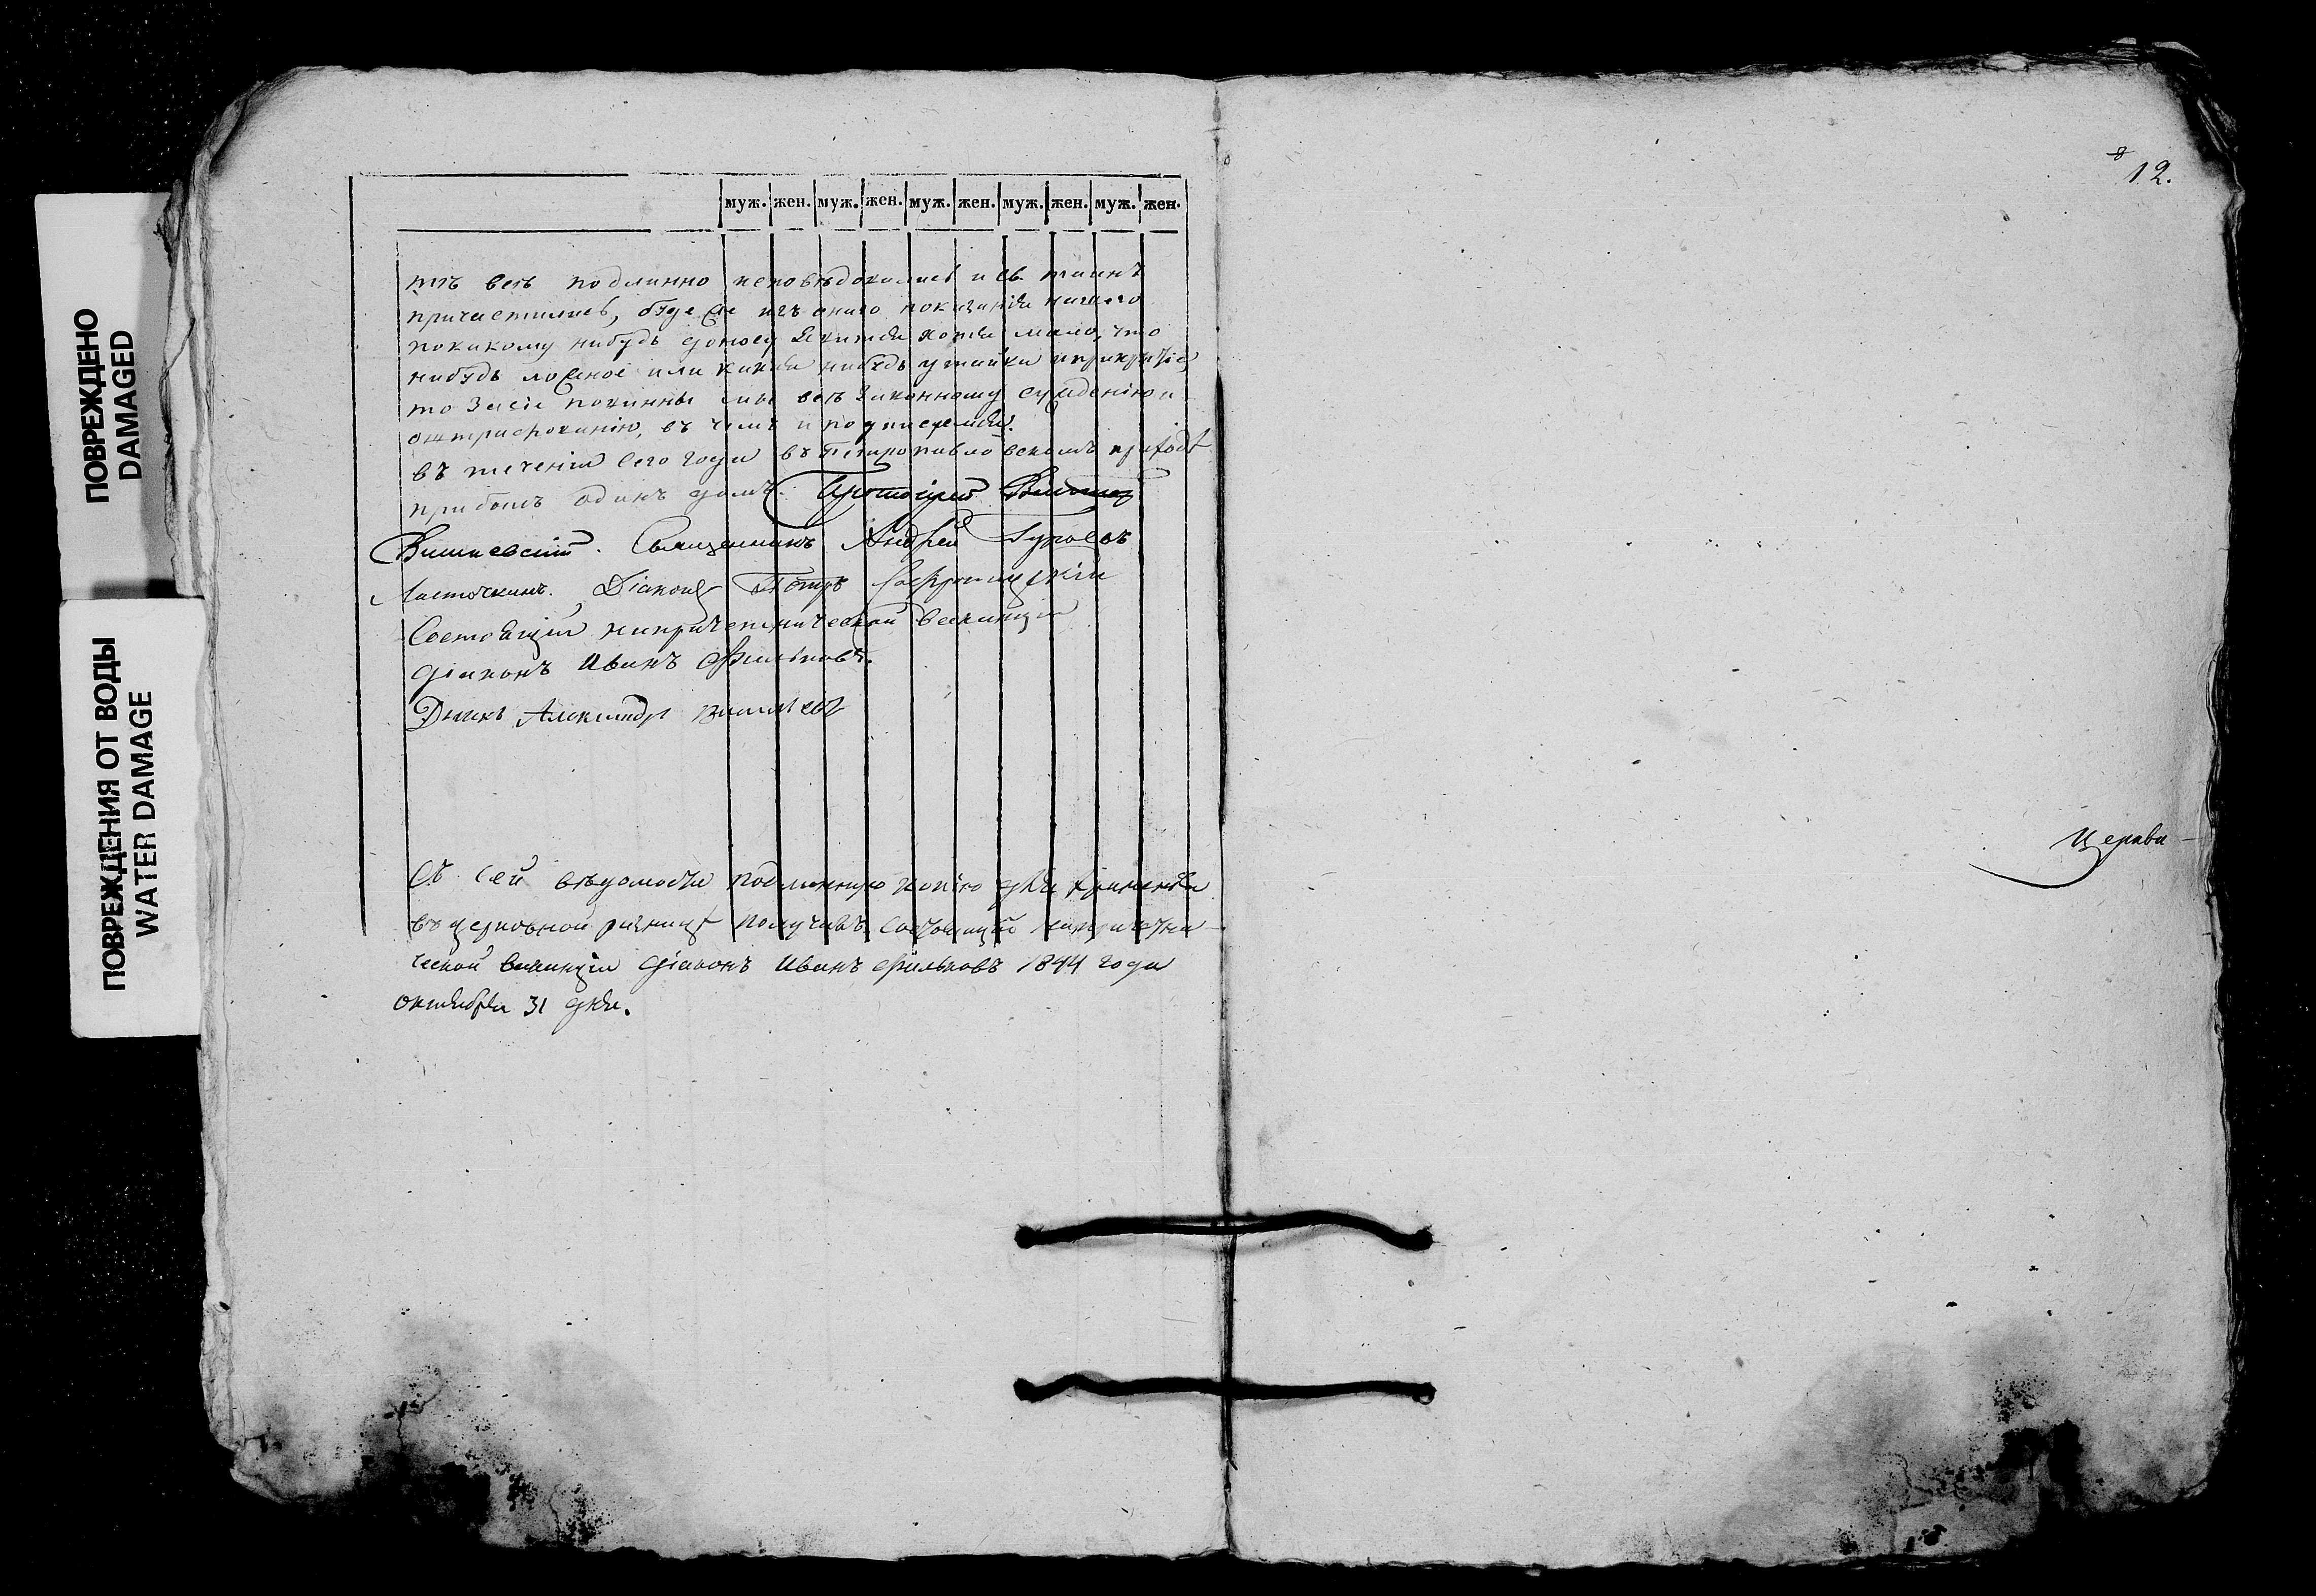 ПОВРЕЖДЕНО
DAMAGED
ПОВРЕЖДЕНИЯ ОТ ВОДЫ
WATER DAMAGE
муж. жен. муж. жен. муж. жен. муж. жен. муж. жен.
тѣ всѣ подлинно исповѣдовались и св. таинъ
причастились, буде же изъ онаго показанія нашего
по какому нибудь доносу явится хотя мало, что
нибудь ложное или какая нибудь утайка и прикрытіе
то за сіе повинны мы всѣ законному сужденію и
штрафованію, въ чемъ и подписуемся.
въ теченіи сего года въ Петропавловскомъ приходѣ
прибылъ одинъ домъ. Протоіерей
Вишневскій. Священникъ Андрей
Ласточкинъ. Діаконъ Петръ
Состоящій на причетнической ваканціи
діаконъ Иванъ Фильковъ.
Дьячекъ Александръ
Съ сей вѣдомости подлинную копію для храненія
въ церковной ризницѣ получилъ состоящій на причетни-
ческой ваканціи діаконъ Иванъ Фильковъ 1844 года
октября 31 дня.
8
12.
Церкви